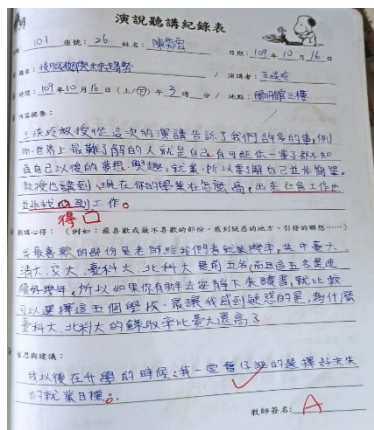 演說聽講紀錄表
101 座號：26 姓名：
日期：109年10月16日
題目： / 演講者：王
時間：109年10月16日(上/下)午3時 分/ 地點：三樓
內容摘要：
教授從這次的演講告訴了我們許多的事，例
如世界上最難了解的人就是自己，有可能你一輩子都不知
道自己以後的夢想、興趣、就業，所以要了解自己並不簡單。
教授也講到，現在你的學業在怎麼高，出來社會工作也
並 到工作。
得
聽講心得：(例如：最喜歡或最不喜歡的部份、感到疑惑的地方、引發的聯想……)
我最喜歡的部份是老師給我們看就業機率，其中臺大、
清大、交大、臺科大、北科大是前五名，而且這五名是連
續好幾年，所以如果你有辦法 下來讀書，就比較
可以選擇這五個學校，最讓我感到疑惑的是，為什麼
臺科大、北科大的錄取率比臺大還高？
省思與建議：
我以後在升學的時候，我一定會仔細的選擇好未來
的就業目標。
教師簽名：A